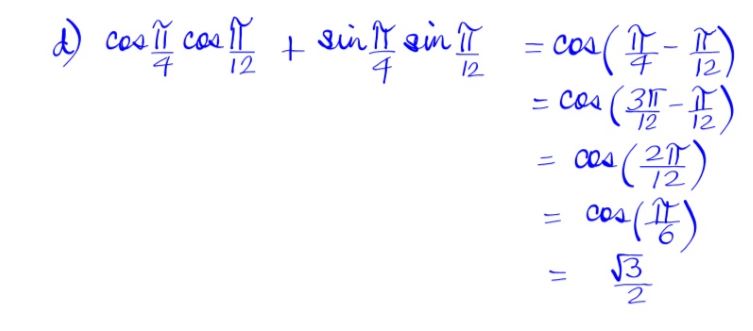 d) cos π/4 cos π/12 + sin π/4 sin π/12 = cos(π/4 - π/12)
= cos(3π/12 - π/12)
= cos(2π/12)
= cos(π/6)
= √3/2